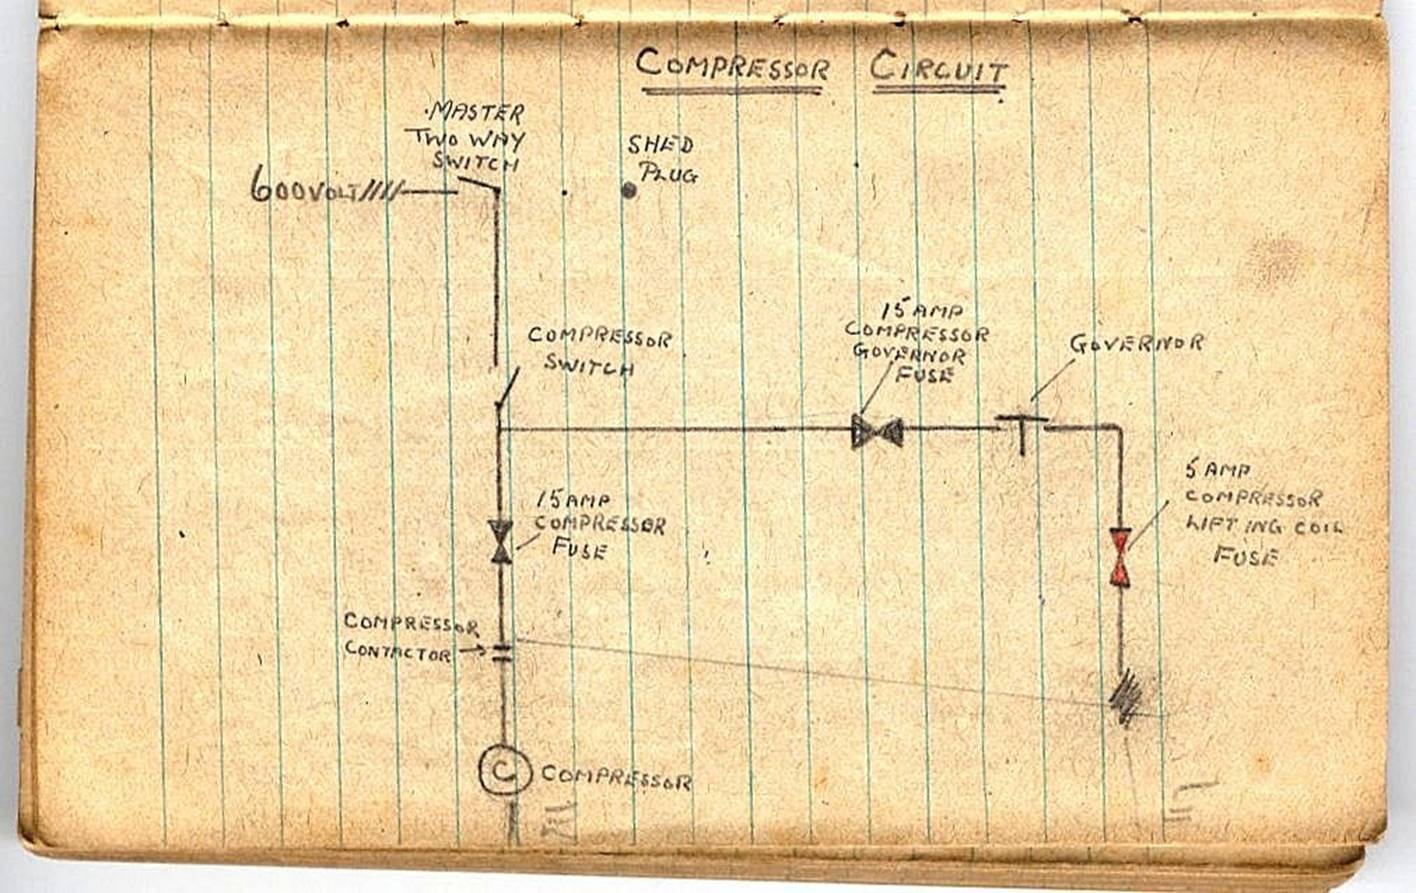 COMPRESSOR CIRCUIT
MASTER
TWO WAY
SWITCH
600VOLT
SHED
PLUG
COMPRESSOR
SWITCH
15 AMP
COMPRESSOR
GOVERNOR
FUSE
GOVERNOR
15 AMP
COMPRESSOR
FUSE
5 AMP
COMPRESSOR
LIFTING COIL
FUSE
COMPRESSOR
CONTACTOR
C COMPRESSOR